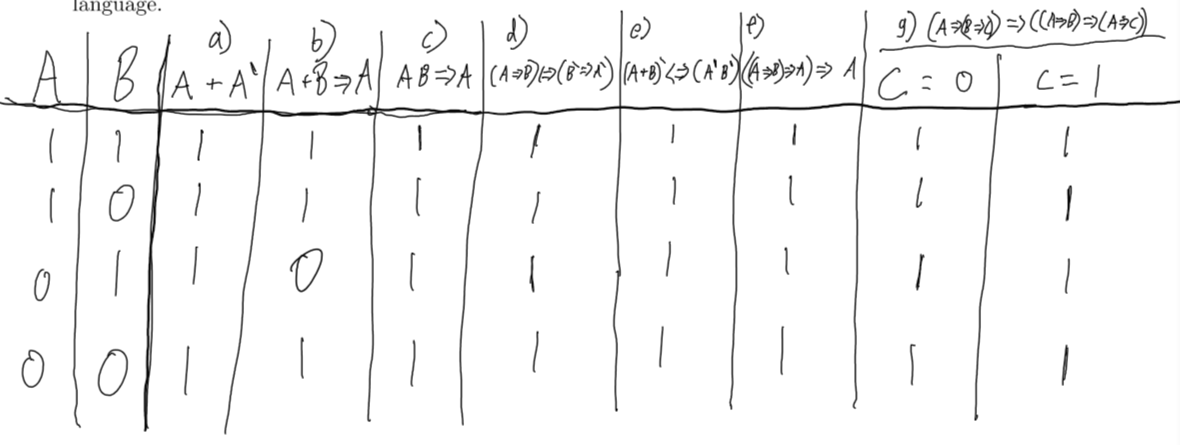 language.
a) b) c) d) e) f) g) (A⇒(B⇒C)) ⇒ ((A⇒B)⇒(A⇒C))
A B A + A' A+B ⇒ A AB ⇒ A (A⇒B)⇔(B'⇒A') (A+B)' ⇔ (A'B') ((A⇒B)⇒A) ⇒ A C = 0 C = 1
1 1 1 1 1 1 1 1 1 1
1 0 1 1 1 1 1 1 1 1
0 1 1 0 1 1 1 1 1 1
0 0 1 1 1 1 1 1 1 1